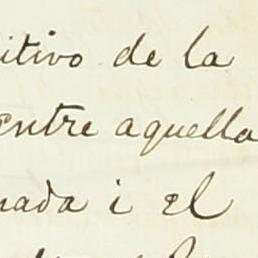 itivo de la
entre aquella
nada i el